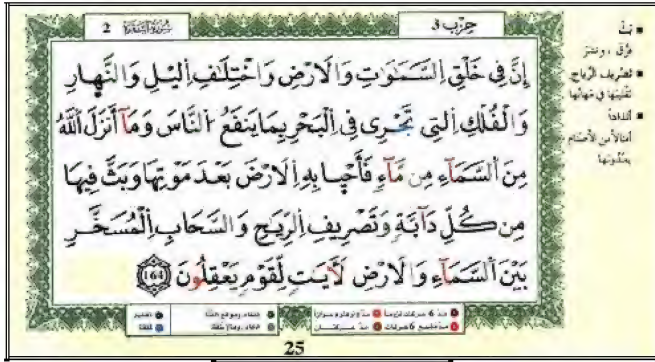 2
سورة البقرة
حزب 3
إِنَّ فِى خَلْقِ اِ۬لسَّمَٰوَٰتِ وَالَارْضِ وَاخْتِلَٰفِ اِ۬ليْلِ وَالنَّهارِ
وَالْفُلْكِ اِ۬لتِى تَجْرِى فِى اِ۬لْبَحْرِ بِمَا يَنفَعُ اُ۬لنَّاسَ وَمَآ أَنزَلَ اَ۬للَّهُ
مِنَ اَ۬لسَّمَآءِ مِن مَّآءٖ فَأَحْيا بِهِ اِ۬لَارْضَ بَعْدَ مَوْتِهَا وَبَثَّ فِيهَا
مِن كُلِّ دَآبَّةٖ وَتَصْرِيفِ اِ۬لرِّيَٰحِ وَالسَّحَابِ اِ۬لْمُسَخَّرِ
بَيْنَ اَ۬لسَّمَآءِ وَالَارْضِ لَأٓيَٰتٖ لِّقَوْمٖ يَعْقِلُونَ 164
بثّ
فرّق ، ونشر
تصريف الرّياح
تقليبها في مهابّها
أندادا
أمثالا من الأصنام
يعبدونها
25